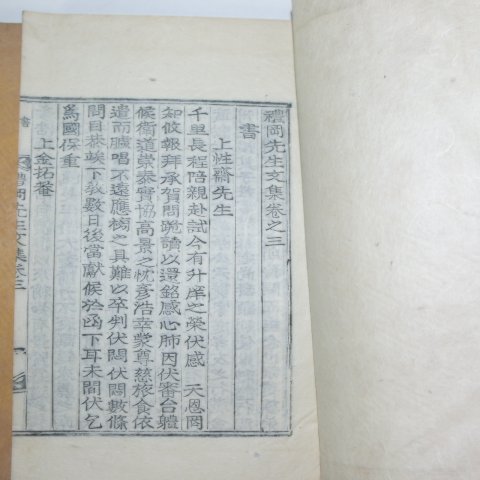 禮岡先生文集卷之三
書
上性齋先生
千里長程陪親赴試今有升庠之榮伏感 天恩罔
知攸報拜承賀問跪讀以還銘感心肺因伏審台軆
候衛道崇泰實協高景之忱彥浩幸蒙尊慈旅食依
遣而臚唱不遠應榜之具難以卒判伏悶伏悶數條
問目恭竢下敎數日後當獻候於函下耳未間伏乞
爲國保重
上金拓菴
禮岡先生文集卷三